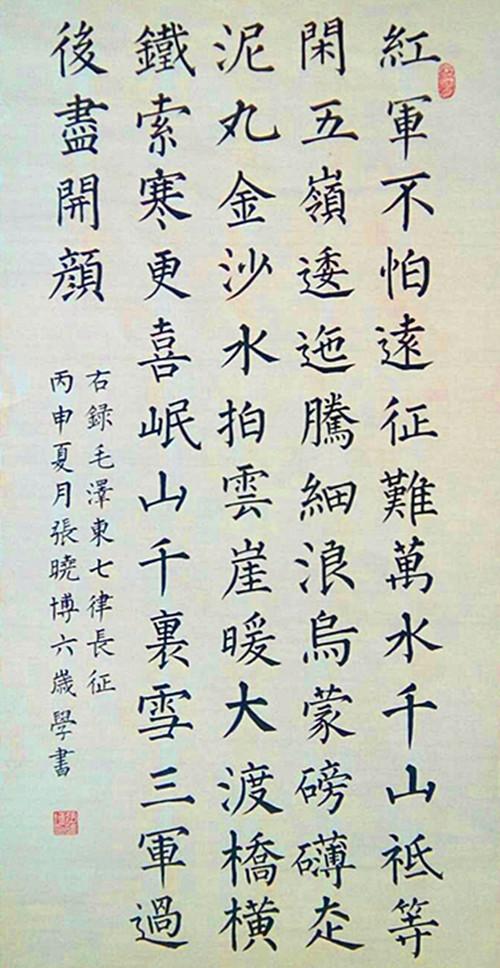 紅軍不怕遠征難萬水千山祗等
閑五嶺逶迤騰細浪烏蒙磅礴走
泥丸金沙水拍雲崖暖大渡橋橫
鐵索寒更喜岷山千裏雪三軍過
後盡開顔
右錄毛澤東七律長征
丙申夏月張曉博六歲學書